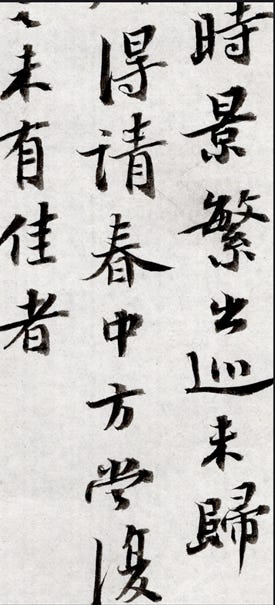 時景繁出巡未歸
得請春中方當復
未有佳者